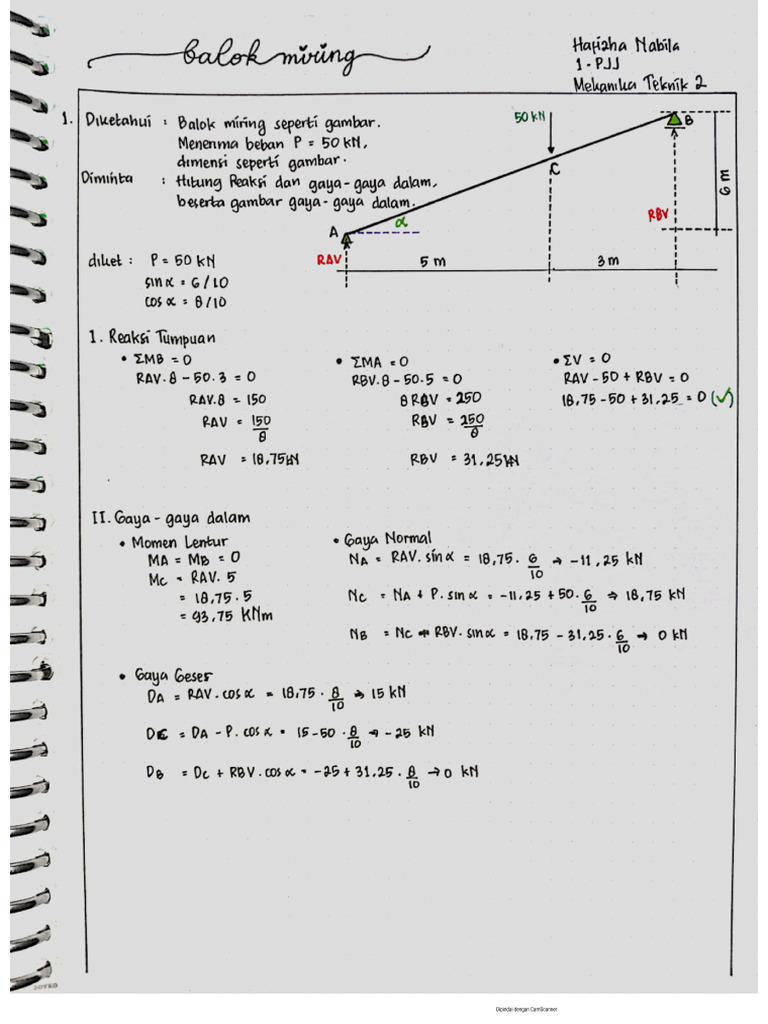 balok miring
Hafizha Nabila
1 - PJJ
Mekanika Teknik 2
1. Diketahui : Balok miring seperti gambar.
Menerima beban P = 50 kN,
dimensi seperti gambar.
Diminta : Hitung Reaksi dan gaya-gaya dalam,
beserta gambar gaya-gaya dalam.
50 kN
B
C
6 m
RBV
α
A
RAV
5 m
3 m
diket : P = 50 kN
sin α = 6/10
cos α = 8/10
I. Reaksi Tumpuan
• ΣMB = 0
RAV.8 - 50.3 = 0
RAV.8 = 150
RAV = 150/8
RAV = 18,75 kN
• ΣMA = 0
RBV.8 - 50.5 = 0
8 RBV = 250
RBV = 250/8
RBV = 31,25 kN
• ΣV = 0
RAV - 50 + RBV = 0
18,75 - 50 + 31,25 = 0 (✓)
II. Gaya - gaya dalam
• Momen Lentur
MA = MB = 0
Mc = RAV. 5
= 18,75 . 5
= 93,75 KNm
• Gaya Normal
NA = RAV. sin α = 18,75 . 6/10 → -11,25 kN
Nc = NA + P. sin α = -11,25 + 50 . 6/10 → 18,75 kN
NB = Nc - RBV. sin α = 18,75 - 31,25 . 6/10 → 0 kN
• Gaya Geser
DA = RAV. cos α = 18,75 . 8/10 → 15 kN
DC = DA - P. cos α = 15 - 50 . 8/10 → -25 kN
DB = Dc + RBV. cos α = -25 + 31,25 . 8/10 → 0 kN
JOYKO
Dipindai dengan CamScanner